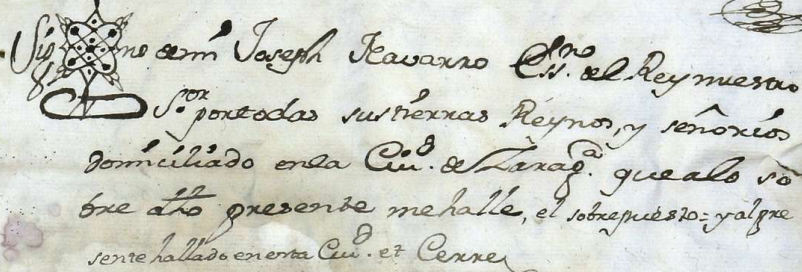 Sig no de mi Joseph Navarro Essno. del Rey nuestro
Sor. por todas sus tierras Reynos, y señorios
domiciliado en la Ciud. de Zaraga. que a lo so
bre dho presente me hallè, el sobrepuesto = y al pre
sente hallado en esta Ciud. et Cerre